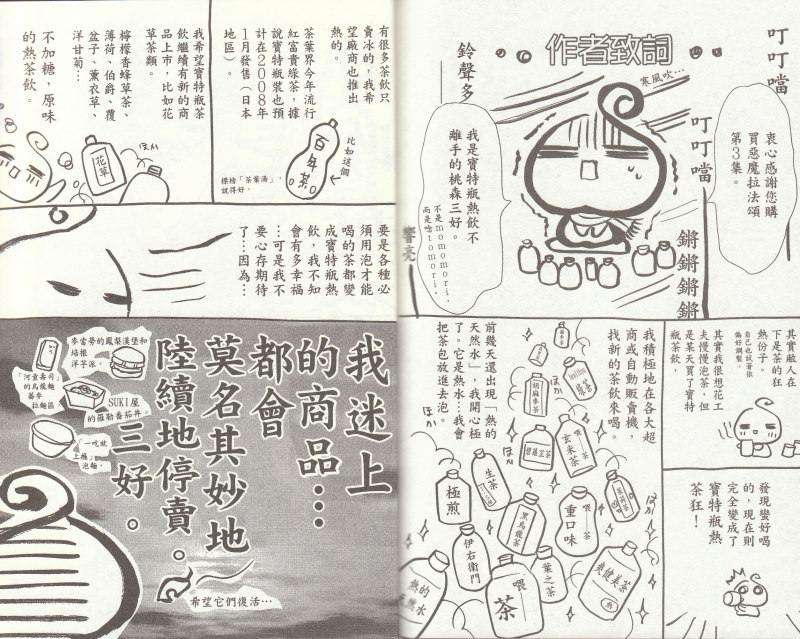 作者致詞
叮叮噹
寒風吹…
鈴聲多
響亮
叮叮噹
鏘鏘鏘鏘
衷心感謝您購
買惡魔拉法頌
第3集。
我是寶特瓶熱飲不
離手的桃森三好。
不是momomori,
而是唸tomori。
其實敝人在
下是茶的狂
熱份子。
自己也試著做
偏好調製
其實我很想花工
夫慢慢泡茶,但
是某天買了寶特
瓶茶飲,
發現蠻好喝
的,現在則
完全變成了
寶特瓶熱
茶狂!
我積極地在各大超
商或自動販賣機,
找新的茶飲來喝。
前幾天還出現「熱的
天然水」,我開心極
了。它是熱水…我會
把茶包放進去泡。
胡麻麥茶
玄米茶
生茶
極煎
黑烏龍茶
重口味
喂
伊右衛門
葉之茶
喂
茶
爽健美茶
熱
熱的
天然水
ほか
ほか
ほか
有很多茶飲只
賣冰的,我希
望廠商也推出
熱的。
茶葉界今年流行
紅富貴綠茶,據
說寶特瓶裝也預
計在2008年
1月發售(日本
地區)。
比如這個
百年茶
標榜「茶葉湯」,
說得好。
我希望寶特瓶茶
飲繼續有新的商
品上市,比如花
草茶類。
檸檬香蜂草茶、
薄荷、伯爵、覆
盆子、薰衣草、
洋甘菊…
不加糖,原味
的熱茶飲。
花草
ほか
要是各種必
須用泡才能
喝的茶都變
成寶特瓶熱
飲,我不知
會有多幸福
…可是我不
要心存期待
了…因為…
我迷上
的商品…
都會
莫名其妙地
陸續地停賣。
三好。
麥當勞的鳳梨漢堡和
培根
洋芋派。
「河童壽司」
的烏龍麵
蕎麥
拉麵區
SUKI屋
的羅勒番茄丼。
「一吃就
上癮」
泡麵。
希望它們復活…